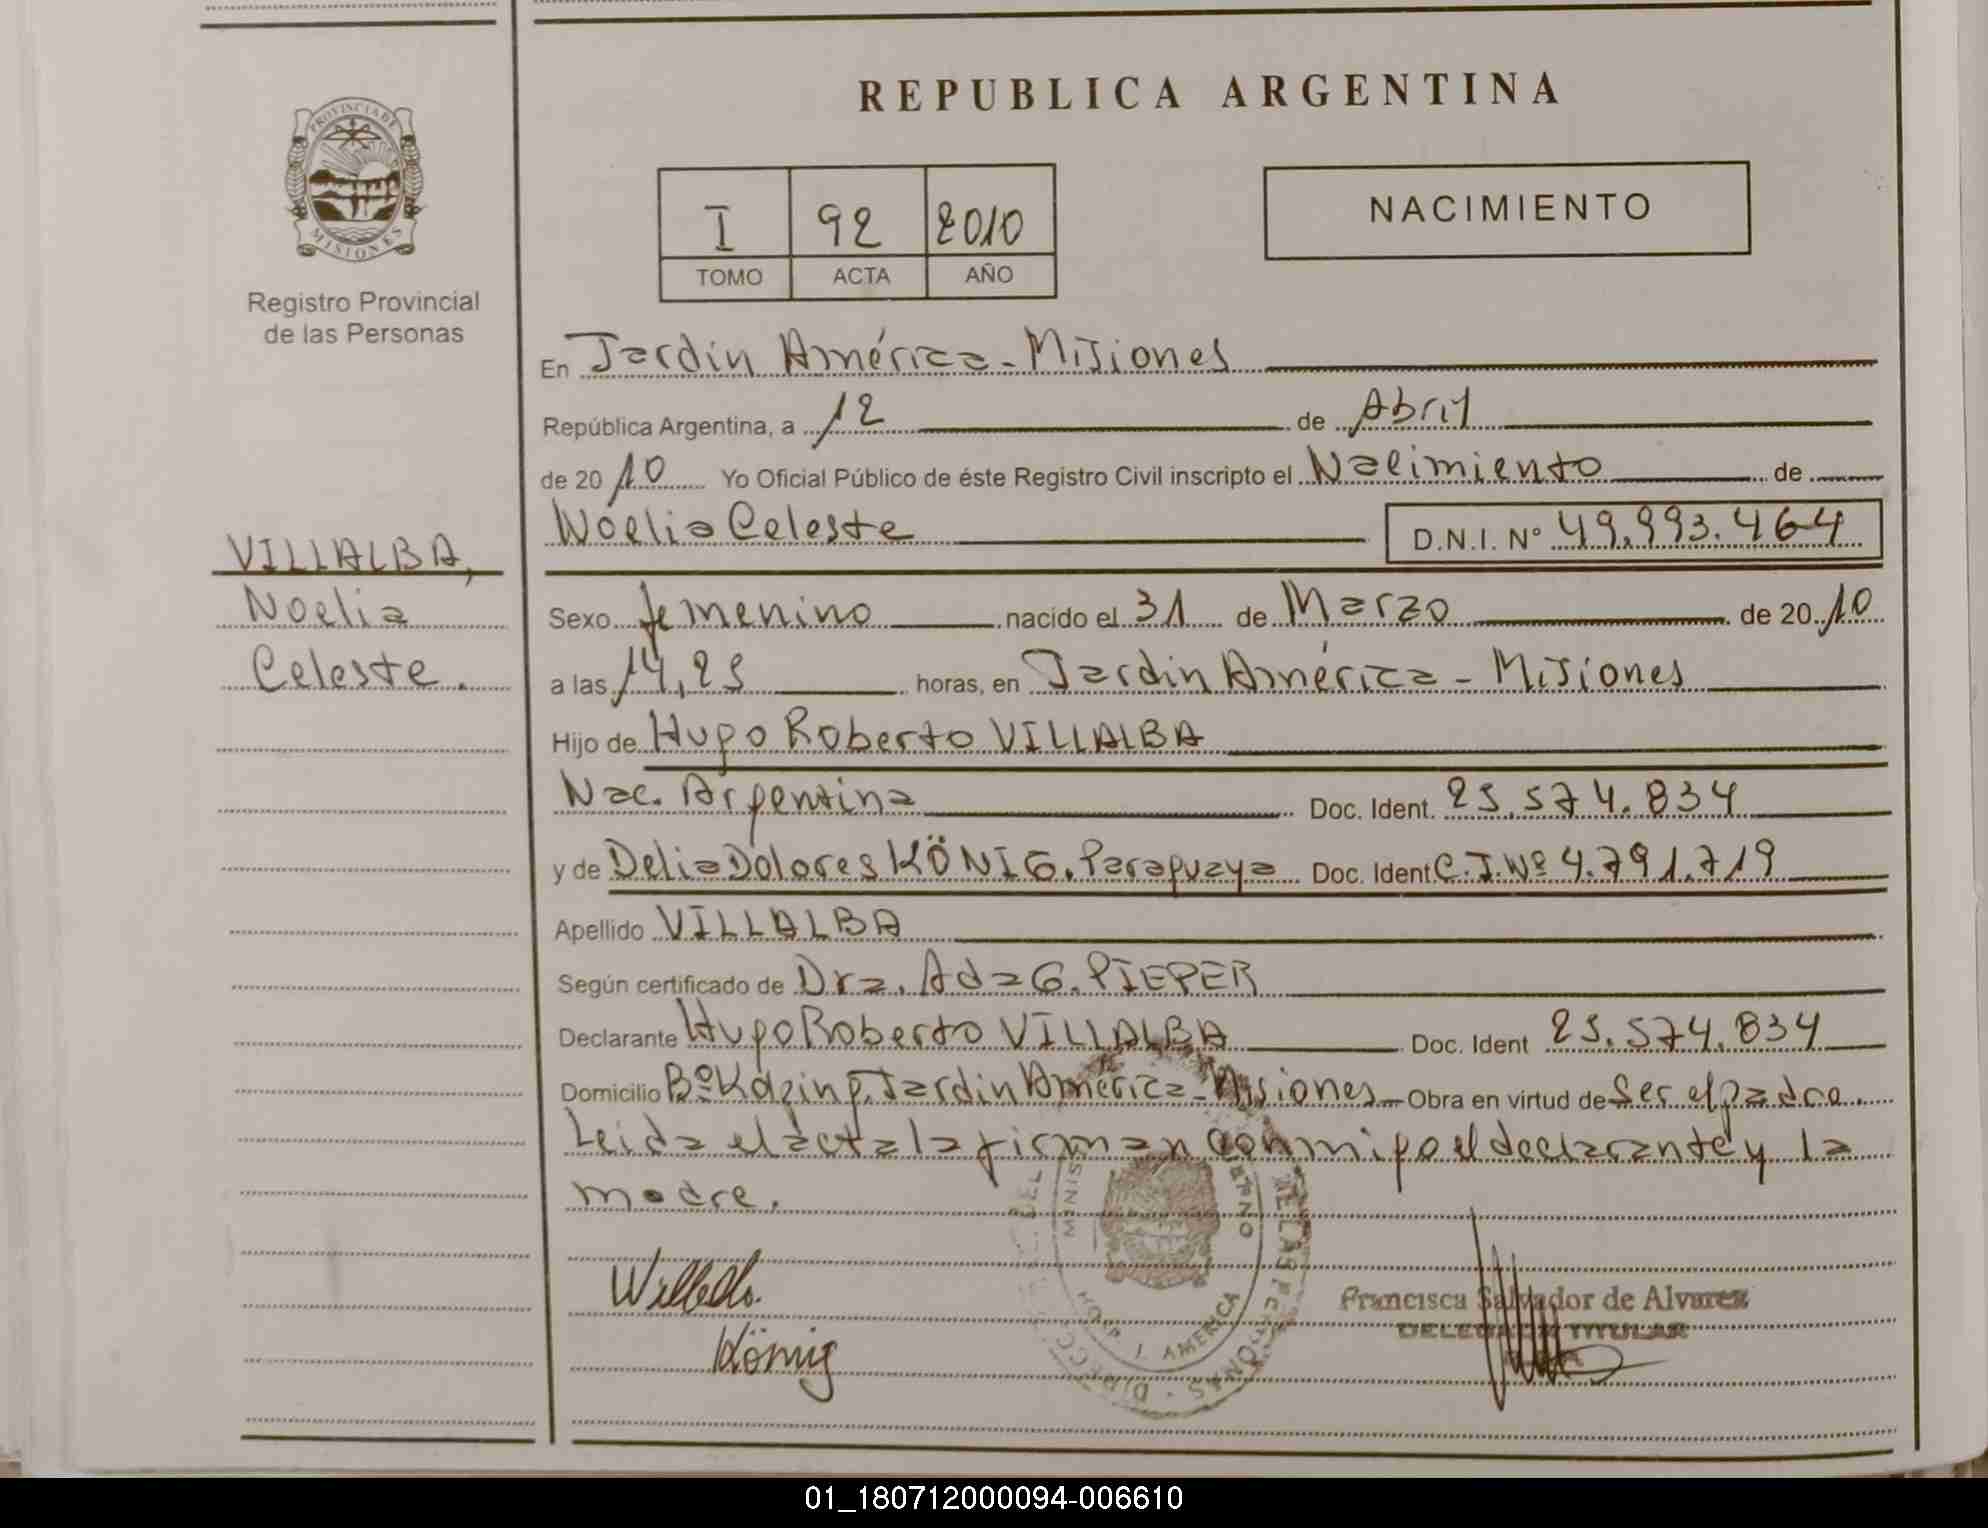 REPUBLICA ARGENTINA
PROVINCIA DE
MISIONES
Registro Provincial
de las Personas
I 92 2010
TOMO ACTA AÑO
NACIMIENTO
En Jardín América - Misiones
República Argentina, a 12 de Abril
de 2010 Yo Oficial Público de éste Registro Civil inscripto el Nacimiento de
Noelia Celeste D.N.I. Nº 49.993.464
VILLALBA,
Noelia
Celeste.
Sexo femenino nacido el 31 de Marzo de 2010
a las 14,25 horas, en Jardín América - Misiones
Hijo de Hugo Roberto VILLALBA
Nac. Argentina Doc. Ident. 25.574.834
y de Delia Dolores KÖNIG. Paraguaya Doc. Ident C.I. Nº 4.791.719
Apellido VILLALBA
Según certificado de Dra. Ada G. PIEPER
Declarante Hugo Roberto VILLALBA Doc. Ident 25.574.834
Domicilio Bº Jardín América - Misiones - Obra en virtud de Ser el padre.
Leida el acta la firman conmigo el declarante y la
madre.
König
Francisca Salvador de Alvarez
DELEGADA TITULAR
01_180712000094-006610